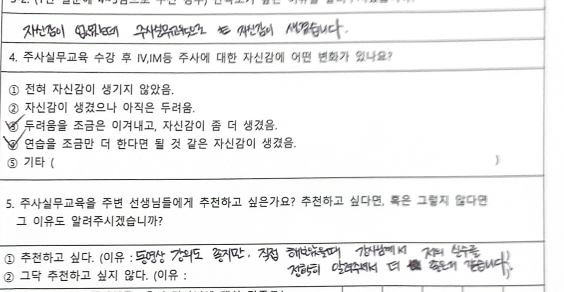 자신감이 없었는데 주사실무교육으로 또 자신감이 생겼습니다.
4. 주사실무교육 수강 후 IV,IM등 주사에 대한 자신감에 어떤 변화가 있나요?
① 전혀 자신감이 생기지 않았음.
② 자신감이 생겼으나 아직은 두려움.
③ 두려움을 조금은 이겨내고, 자신감이 좀 더 생겼음.
④ 연습을 조금만 더 한다면 될 것 같은 자신감이 생겼음.
⑤ 기타 ( )
5. 주사실무교육을 주변 선생님들에게 추천하고 싶은가요? 추천하고 싶다면, 혹은 그렇지 않다면
그 이유도 알려주시겠습니까?
① 추천하고 싶다. (이유 : 동영상 강의도 좋지만, 직접 해보았을때 강사님께서 저의 실수를
② 그닥 추천하고 싶지 않다. (이유 : 정확히 알려주셔서 더 좋은거 같습니다.)